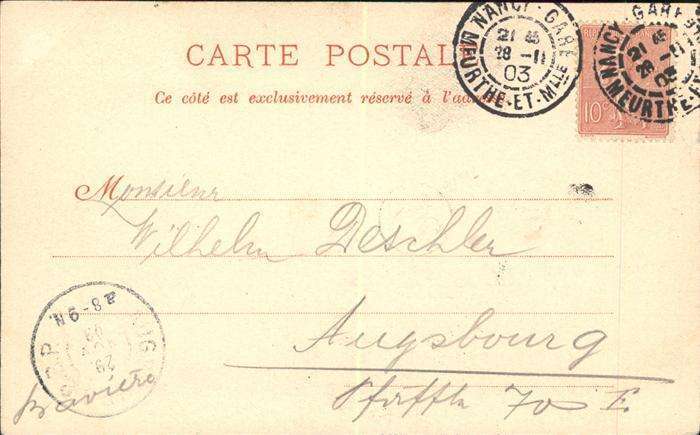 CARTE POSTALE
Ce côté est exclusivement réservé à l'adresse
NANCY-GARE
21 45
28-11
03
MEURTHE-ET-MLLE
NANCY-GARE
21 45
28-11
03
MEURTHE-E
10c
Monsieur
Wilhelm Deschler
Augsbourg
70 E.
Bavière
AUG
29
8-9N